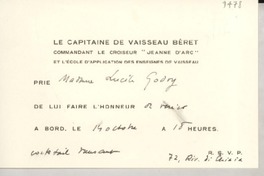 LE CAPITAINE DE VAISSEAU BÉRET
COMMANDANT LE CROISEUR "JEANNE D'ARC"
ET L'ÉCOLE D'APPLICATION DES ENSEIGNES DE VAISSEAU
PRIE Madame Lucila Godoy
DE LUI FAIRE L'HONNEUR de venir
A BORD, LE 14 octobre A 18 HEURES.
R. S. V. P.
cocktail
72,